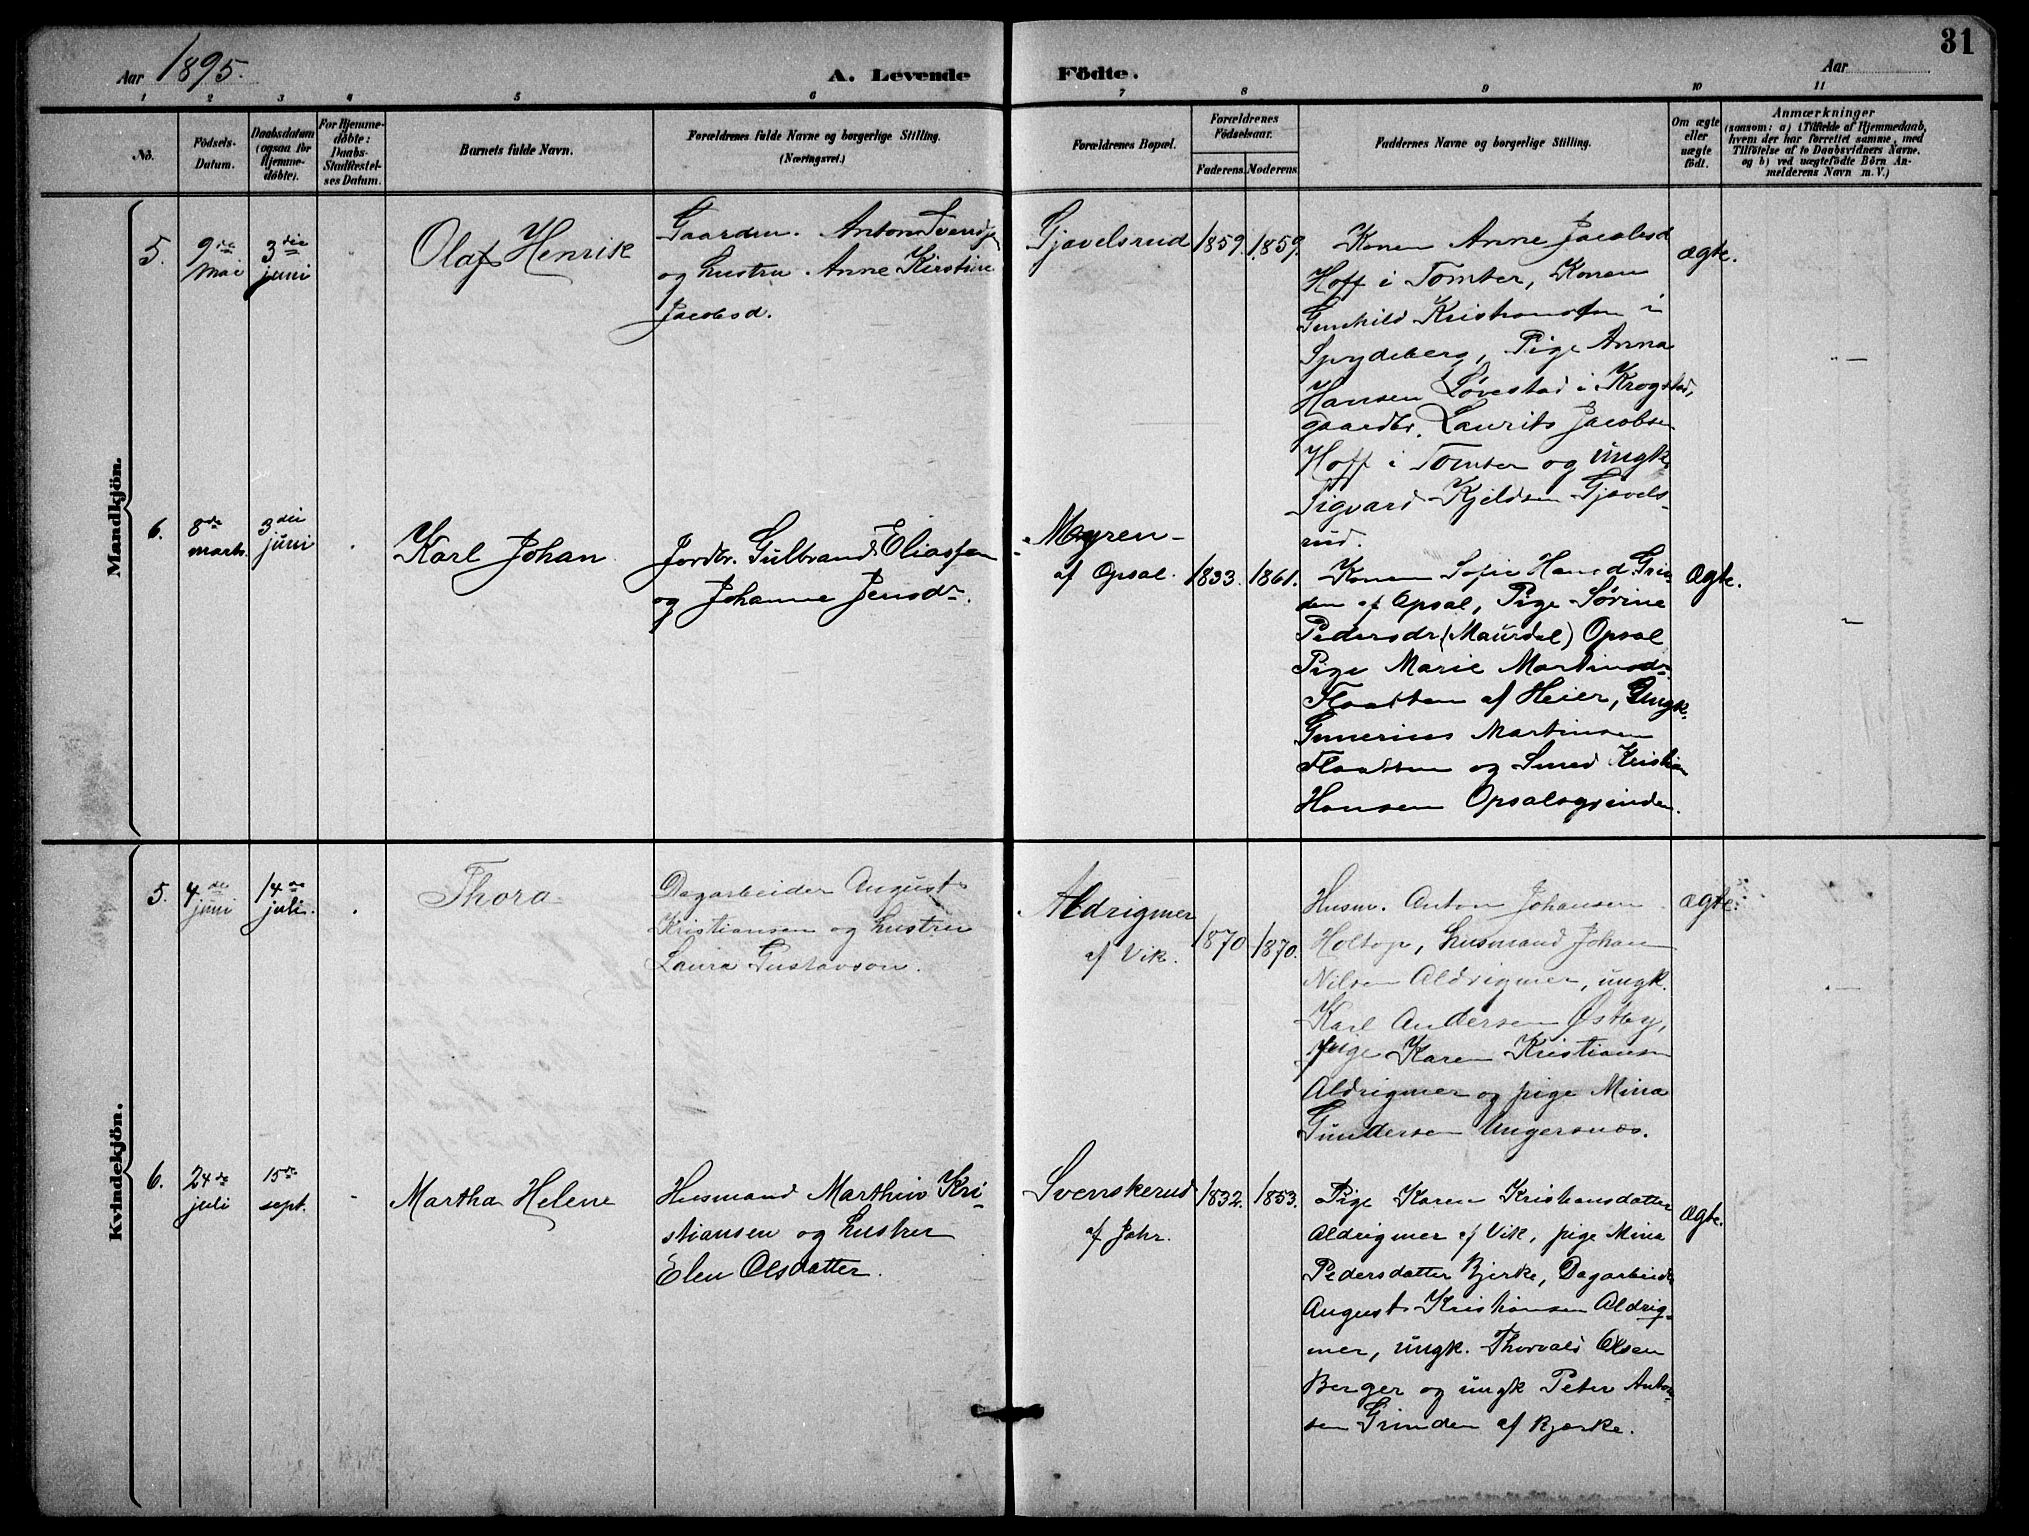 31
Aar 1895.
A. Levende Födte.
Aar
1 2 3 4 5 6 7 8 9 10 11
No.
Födsels-
Datum.
Daabsdatum
(ogsaa för
Hjemme-
döbte).
For Hjemme-
döbte:
Daabs-
Stadfæstel-
ses Datum.
Barnets fulde Navn.
Forældrenes fulde Navne og borgerlige Stilling.
(Næringsvei.)
Forældrenes Bopæl.
Forældrenes
Födselsaar.
Faderens. Moderens.
Faddernes Navne og borgerlige Stilling.
Om ægte
eller
uægte
födt.
Anmærkninger
(saasom: a) i Tilfælde af Hjemmedaab,
hvem der har forrettet samme, med
Tilföielse af to Daabsvidners Navne,
og b) ved uægtefödte Börn An-
melderens Navn m. V.)
Mandkjön.
5.
9de
mai
3die
juni
Olaf Henrik
Gaardm. Anton Svends
og hustru Anne Kirstine
Jacobsd.
Gjævelsrud
1859.
1859.
Konen Anne Jacobsd
Hoff i Tomter, Konen
Gunhild Kristiansen i
Spydeberg, Pige Anna
Hansen Løvestad i Krogstad,
gaardbr. Laurits Jacobsen
Hoff i Tomter og ungk.
Sigvard Kjeldsen Gjævels-
rud.
ægte.
6.
8de
marts.
3die
juni
Karl Johan
Jordbr. Gulbrand Eliassen
og Johanne Jensdr.
Myren
af Opsal.
1833.
1861.
Konen Sofie Hansd. Grin-
den af Opsal, Pige Sørine
Pedersdr (Maursdal) Opsal
Pige Marie Martinsdr
Flaatten af Heier, Ungk.
Gunerius Martinsen
Flaatten og Smed Kristian
Hansen Opsalsgrinden.
ægte.
Kvindekjön.
5.
4de
juni
14de
juli.
Thora
Dagarbeider August
Kristiansen og hustru
Laura Gustavson.
Aldrigmer
af Vik.
1870
1870.
Husm. Anton Johansen
Holtop, husmand Johan
Nilsen Aldrigmer, ungk.
Karl Andersen Østby,
pige Karen Kristiansen
Aldrigmer og pige Mina
Gundersen Ungersnæs.
ægte.
6.
24de
juli
15de
sept.
Martha Helene
Husmand Marthin Kri-
stiansen og hustru
Elen Olsdatter.
Svenskerud
af Jahr.
1832.
1853.
Pige Karen Kristiansdatter
Aldrigmer af Vik, pige Mina
Pedersdatter Bjerke, Dagarbeider
August Kristiansen Aldrig-
mer, ungk. Thorvald Olsen
Berger og ungk Peter Anton-
sen Grinden af Bjerke.
ægte.